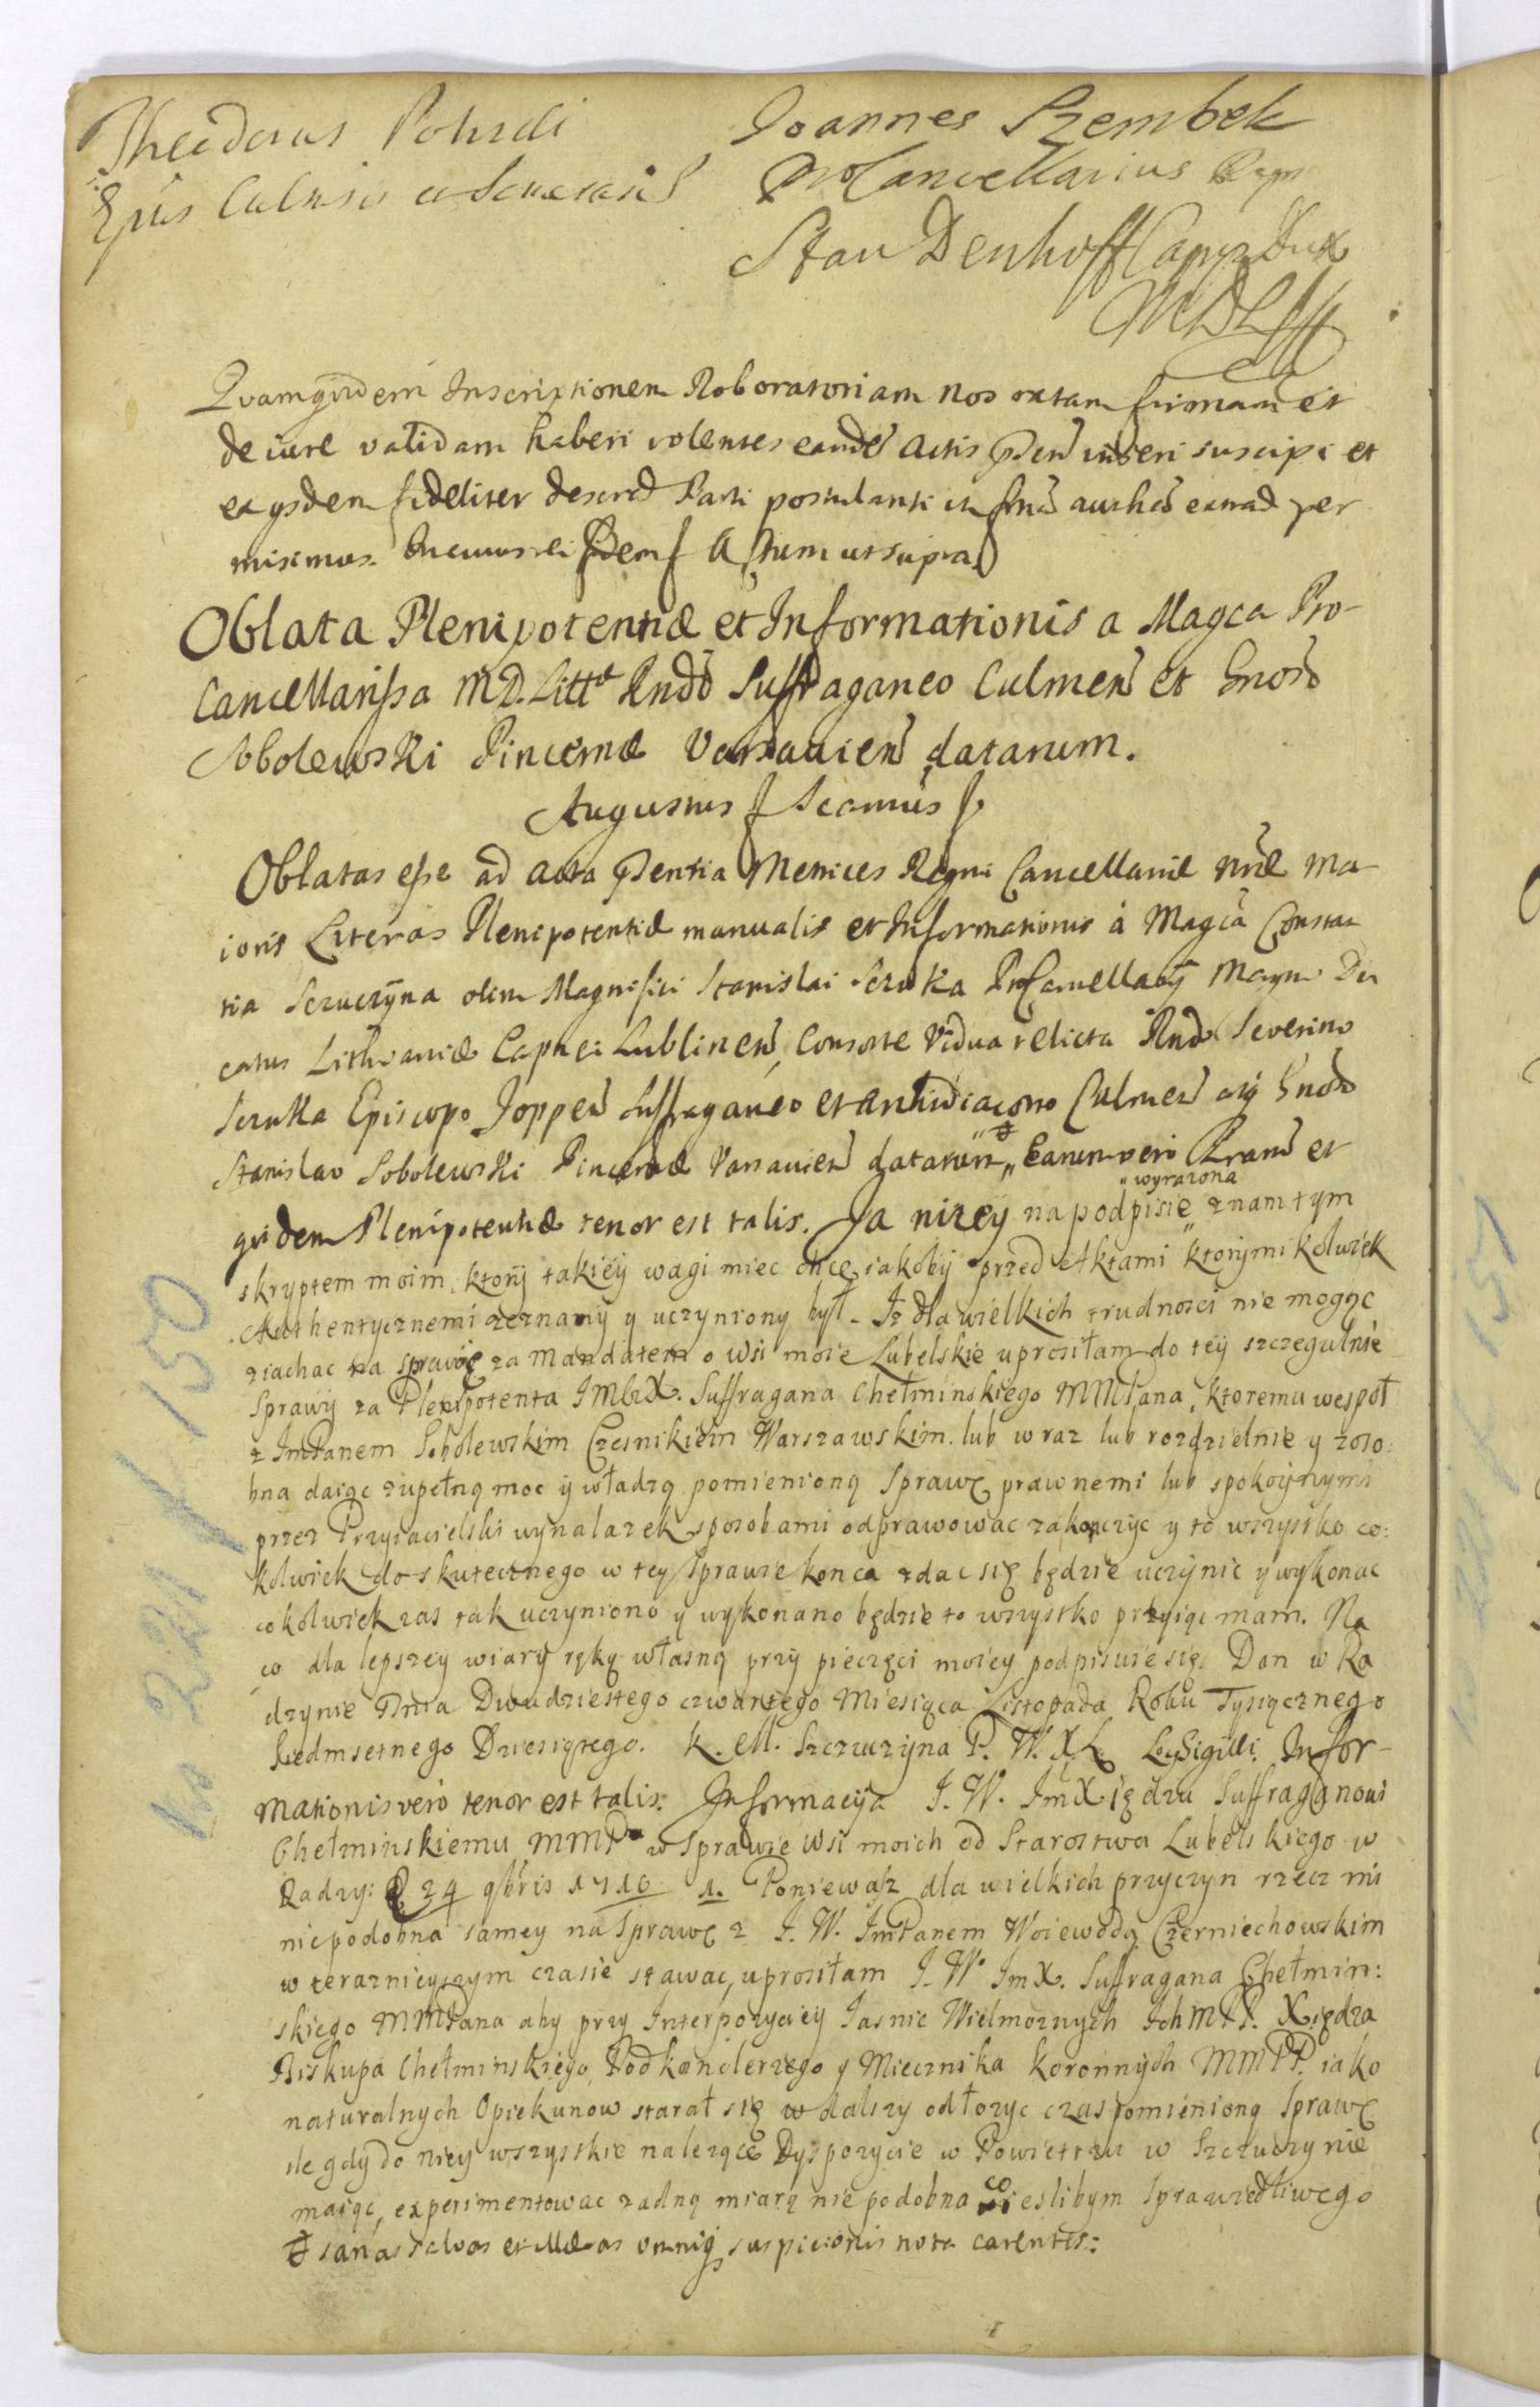 Theodorus Potucki
Epūs Culmsis
Joannes Szembek
ProCancellarius Regn
Stan Denhoff Camp Dux
MDL
Quamquidem Inscriptionem Roboratoriam nos ratam firmam et
de iure validam haberi volentes eande Actis inseri suscipi et
ex ysdem fideliter Parti postulanti in extrad per
misimus. Actum ut supra
Oblata Plenipotentiæ et Informationis a Magca Pro-
Cancellarissa M.D. Litt Rndo Suffraganeo Culmen et Gnoso
Sobolewski Pincernæ Varsavien datarum.
Augustus Scdus
Oblatas esse ad acta Metrices Regni Cancellariæ nræ Ma-
ioris Literas Plenipotentiæ manualis et Informationis à Magca Constan
tia Sczuczyna olim Magnifici Stanislai Sczuka ProCancellarij Magni Du
catus Lithvaniæ Capnei Lublinen, Consorte Vidua relicta Rndo Severino
Sczuka Episcopo Joppen Suffraganeo et Archidiacono Culmen ac Gnoso
Stanislao Sobolewski Pincernæ Varsavien datarum " et
quidem Plenipotentiæ tenor est talis. Ja nizey na podpisie "wyrazona znam tym
skryptem moim, ktory takiey wagi miec chce iakoby przed Aktami ktorymi kolwiek
Authentycznemi zeznany y uczyniony był. Iz dla wielkich trudnosci nie mogąc
ziachac na sprawę za Mandatem o wsi moie Lubelskie uprosiłam do tey szczegulnie
Sprawy za Plenipotenta Suffragana Chełminskiego MMPana, ktoremu wespoł
z ImPanem Sobolewskim Czesnikiem Warszawskim. lub wraz lub rozdzielnie y zoso:
bna daiąc zupełną moc y władzą pomienioną Sprawę prawnemi lub spokoynymi
przez Przyiacielski wynalazek sposobami odprawowac zakonczyc y to wszystko co:
kolwiek do skutecznego w tey Sprawie konca zdac się będzie uczynic y wykonac
cokolwiek zas tak uczyniono y wykonano będzie to wszystko przyiąc mam. Na
co dla lepszey wiary ręką własną przy pieczęci moiey podpisuie się. Dan w Ra
dzynie Dnia Dwudziestego czwartego Miesiąca Listopada Roku Tysiącznego
Siedmsetnego Dziesiątego. K. M. Szczuczyna P. W. X. L. LocySigilli. Infor-
mationis vero tenor est talis: Informacyia J. W. ImXiędzu Suffraganowi
Chełminskiemu MMP w Sprawie wsi moich od Starostwa Lubelskiego w
Radzy: D 24 9bris 1710. 1. Poniewasz dla wielkich przyczyn rzecz mi
niepodobna samey na Sprawę z J. W. ImPanem Woiewodą Czerniechowskim
w teraznieyszym czasie stawac, uprosiłam J. W. ImX. Suffragana Chełmin:
skiego MMPana aby przy Interpozyciey Jasnie Wielmoznych IchMPP. Xiędza
Biskupa Chełminskiego, Podkanclerzego y Miecznika Koronnych MMPP. iako
naturalnych Opiekunow starał się w dalszy odłozyc czas pomienioną Sprawę
ile gdy do niey wszystkie nalezące Dyspozycie w Powietrzu w Szczuczynie
maiąc, experimentowac zadną miarą nie podobna co ieslibym Sprawiedliwego
# sanas salvas et illæsas omniq suspicionis nota carentes: